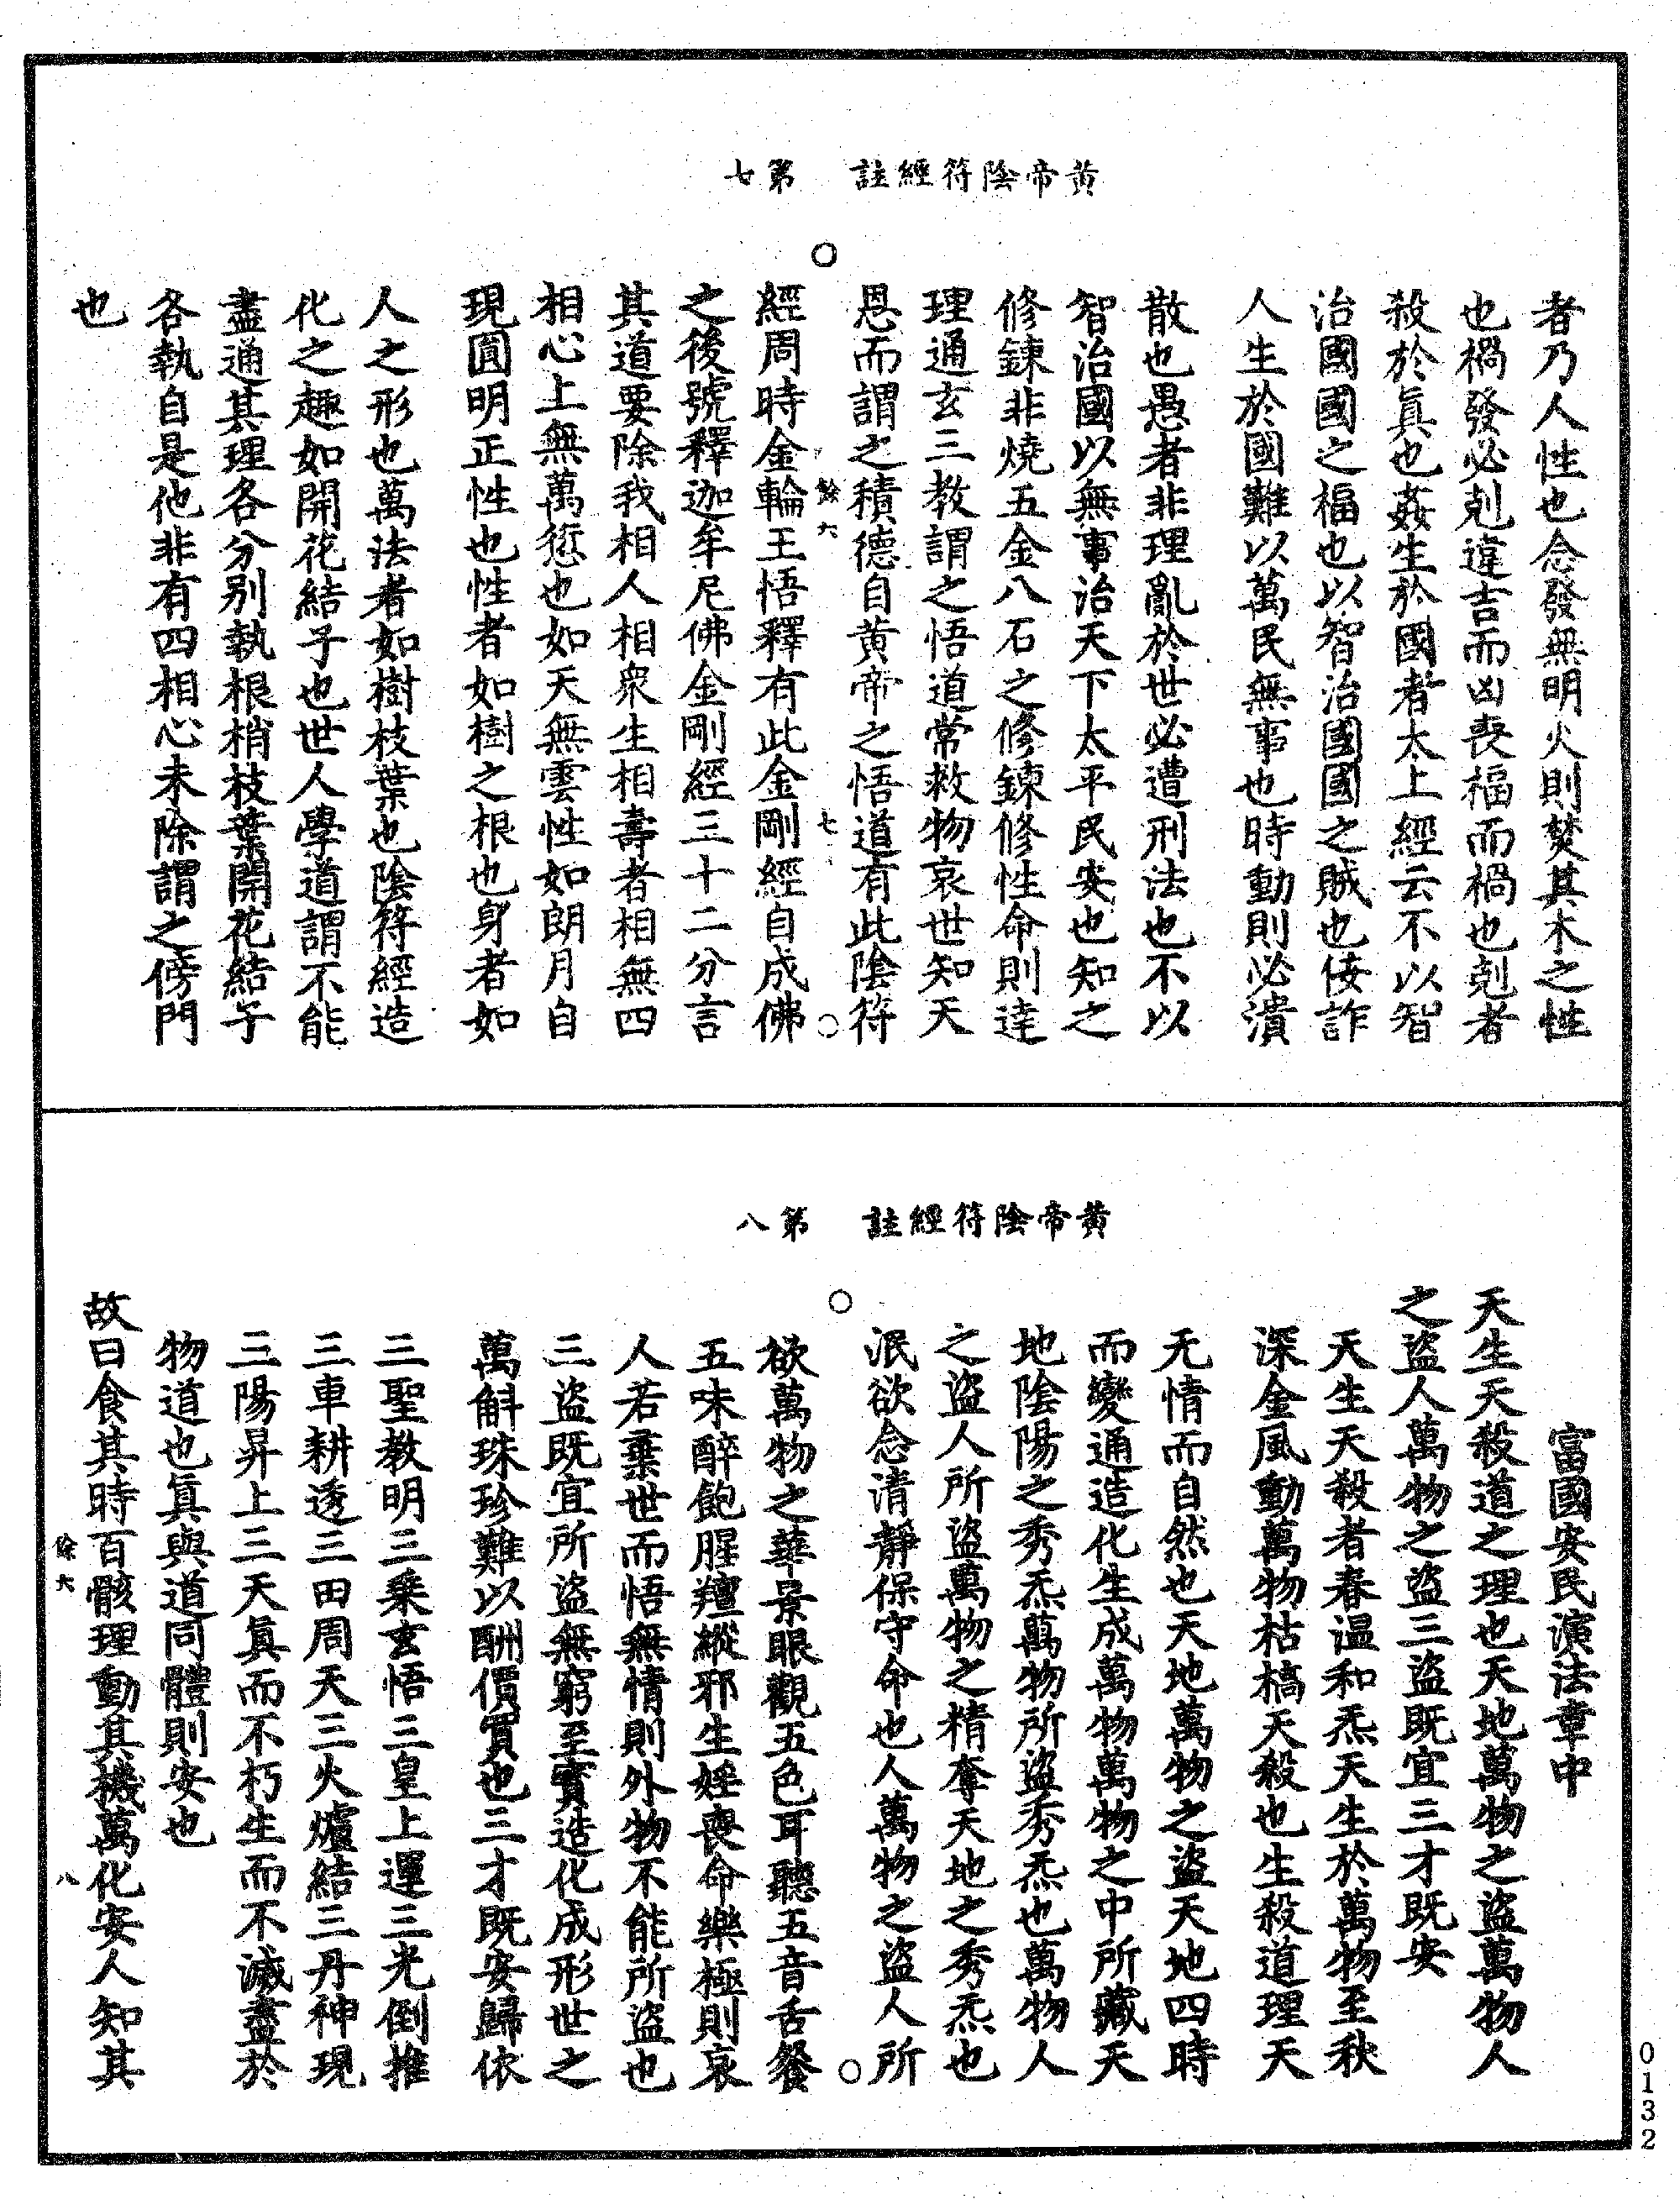 黄帝陰符經註　第七
者乃人性也念發無明火則焚其木之性
也禍發必剋違吉而凶喪福而禍也剋者
殺於真也姦生於國者太上經云不以智
治國國之福也以智治國國之賊也佞詐
人生於國難以萬民無事也時動則必潰
散也愚者非理亂於世必遭刑法也不以
智治國以無事治天下太平民安也知之
修鍊非燒五金八石之修鍊修性命則達
理通玄三教謂之悟道常救物哀世知天
恩而謂之積德自黄帝之悟道有此陰符
餘六　七
經周時金輪王悟釋有此金剛經自成佛
之後號釋迦牟尼佛金剛經三十二分言
其道要除我相人相衆生相壽者相無四
相心上無萬愆也如天無雲性如朗月自
現圓明正性也性者如樹之根也身者如
人之形也萬法者如樹枝葉也陰符經造
化之趣如開花結子也世人學道謂不能
盡通其理各分别執根梢枝葉開花結子
各執自是他非有四相心未除謂之傍門
也
黄帝陰符經註　第八
富國安民演法章中
天生天殺道之理也天地萬物之盜萬物人
之盜人萬物之盜三盜既宜三才既安
天生天殺者春温和炁天生於萬物至秋
深金風動萬物枯槁天殺也生殺道理天
无情而自然也天地萬物之盜天地四時
而變通造化生成萬物萬物之中所藏天
地陰陽之秀炁萬物所盜秀炁也萬物人
之盜人所盜萬物之精奪天地之秀炁也
泯欲念清靜保守命也人萬物之盜人所
欲萬物之華景眼觀五色耳聽五音舌餐
五味醉飽腥羶縱邪生婬喪命樂極則哀
人若棄世而悟無情則外物不能所盜也
三盜既宜所盜無窮至寶造化成形世之
萬斛珠珍難以酬價買也三才既安歸依
三聖教明三乘玄悟三皇上運三光倒推
三車耕透三田周天三火爐結三丹神現
三陽昇上三天真而不朽生而不滅盡於
物道也真與道同體則安也
故曰食其時百骸理動其機萬化安人知其
餘六　八
0132